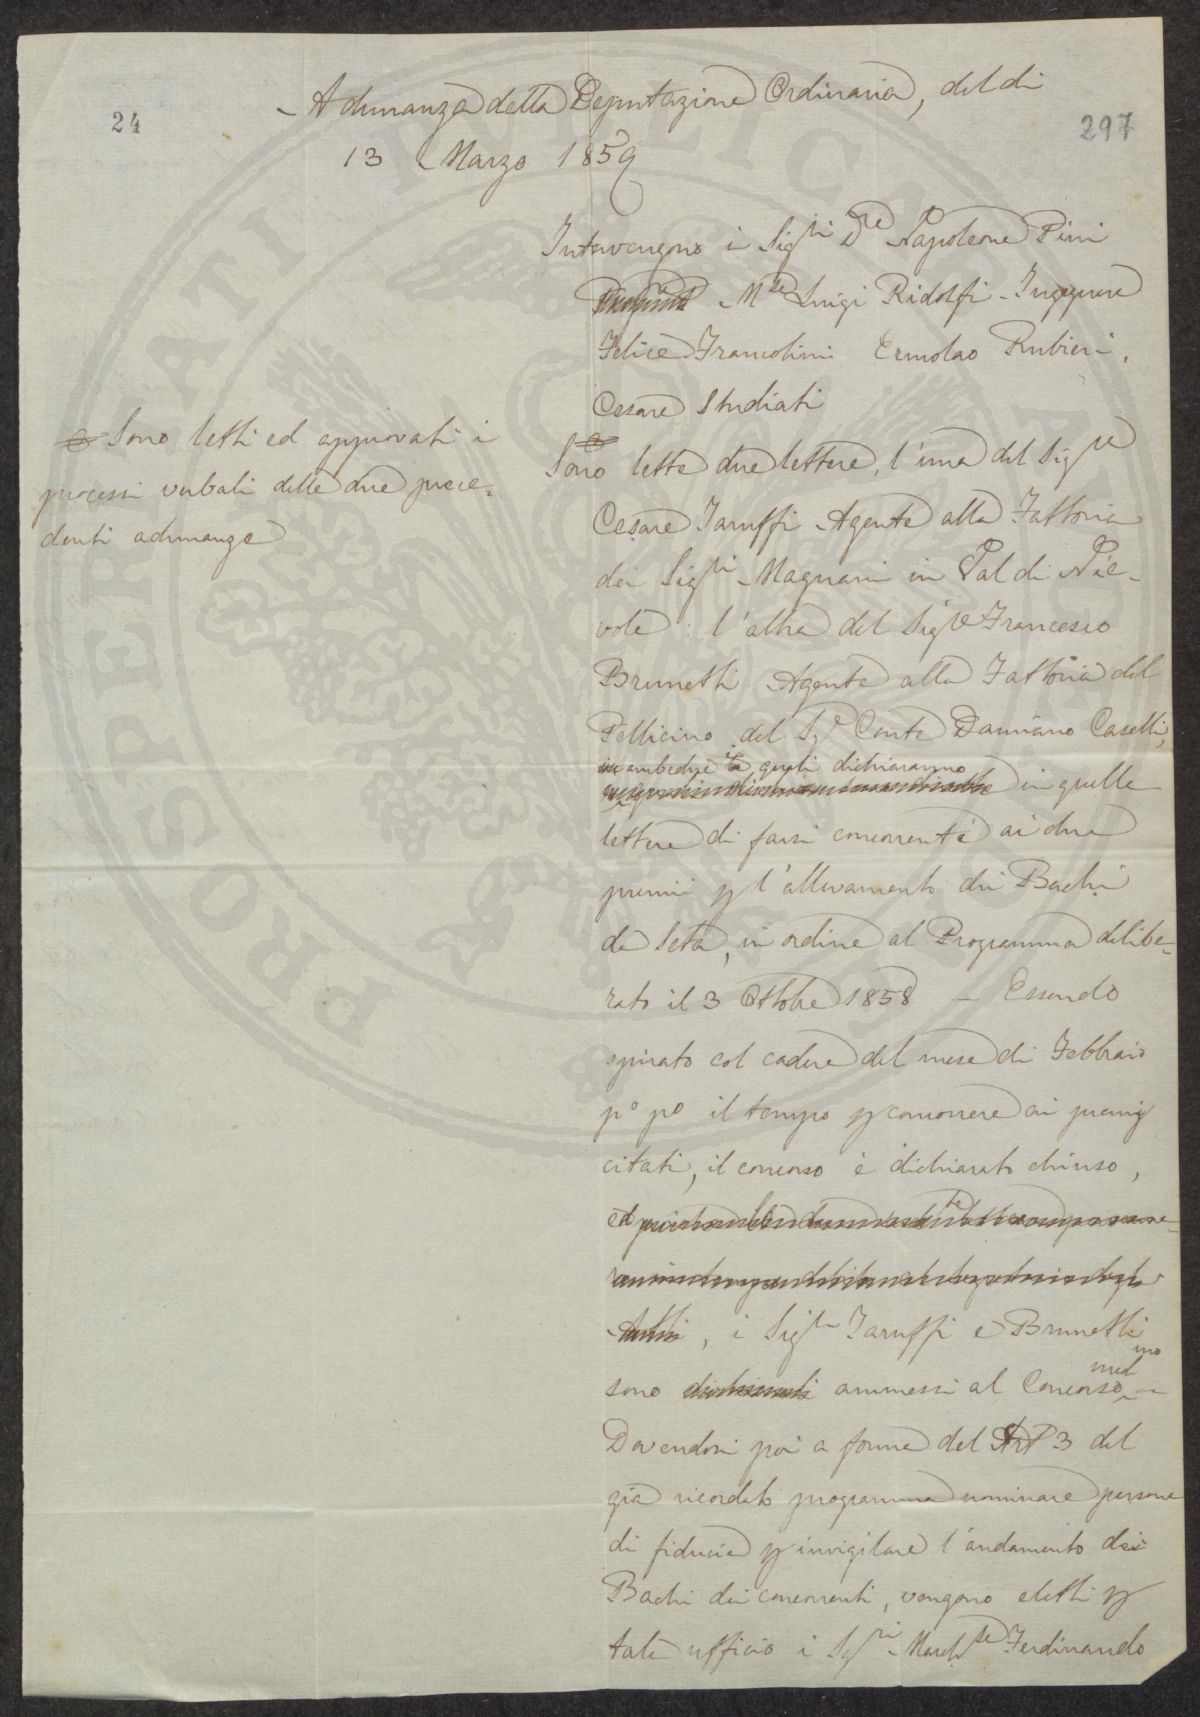 24
297
Adunanza della Deputazione Ordinaria, del di
13 Marzo 1859
Intervengono i Sig.ri Dre Napoleone Pini
Mse Luigi Ridolfi - Ingegnere
Felice Francolini Ermolao Rubieri,
Cesare Studiati
Sono letti ed approvati i
processi verbali delle due prece-
denti adunanze
Sono lette due lettere, l'una del Sigre
Cesare Taruffi Agente alla Fattoria
dei Sigri Magnani in Val di Nie-
vole: l'altra del Sigre Francesco
Brunetti Agente alla Fattoria del
Pellicino del Sre Conte Damiano Caselli,
ambedue i quali dichiararono
in quelle
lettere di farsi concorrenti ai due
premii p l'allevamento dei Bachi
da Seta, in ordine al Programma delibe-
rato il 3 Ottobre 1858 - Essendo
spirato col cadere del mese di Febbraio
po po il tempo p concorrere ai premij
citati, il concorso è dichiarato chiuso,
ed
Atti, i Sigri Taruffi e Brunetti
sono dichiarati ammessi al Concorso medmo -
Dovendosi poi a forma del Art 3 del
già ricordato programma nominare persone
di fiducia p invigilare l'andamento dei
Bachi dei concorrenti, vengono eletti p
tale ufficio i Sgri Marchse Ferdinando
PROSPERITATI PUBLICAE